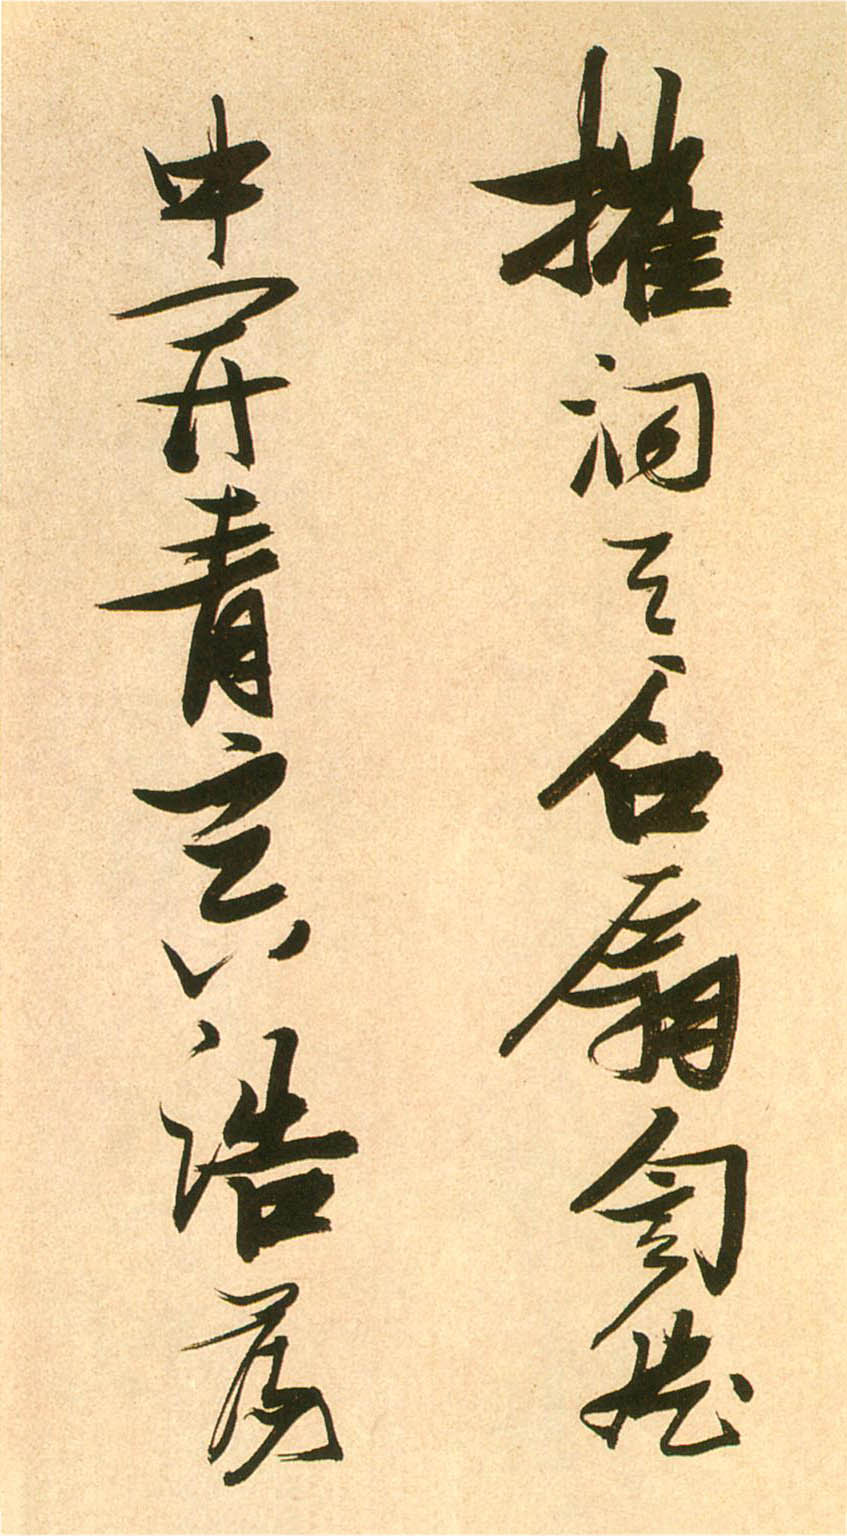 摧洞天石扇訇然
中開青冥浩蕩